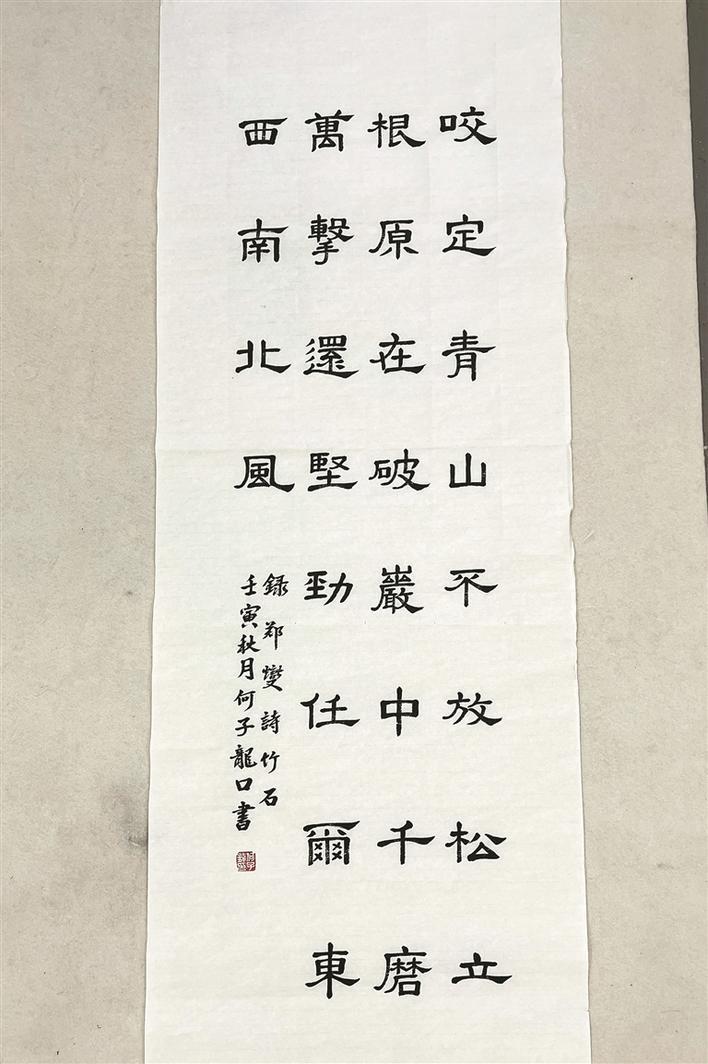 咬定青山不放松立
根原在破巖中千磨
萬擊還堅勁任爾東
西南北風
録郑燮詩竹石
壬寅秋月何子龍口書